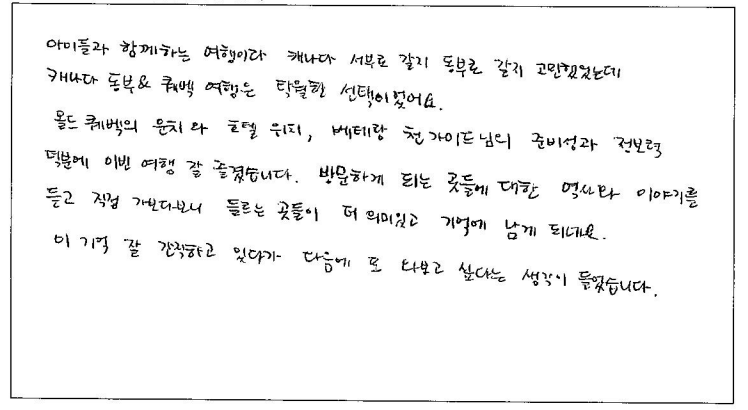 아이들과 함께하는 여행이라 캐나다 서부로 갈지 동부로 갈지 고민했었는데
캐나다 동부& 퀘벡 여행은 탁월한 선택이었어요.
올드 퀘벡의 운치와 호텔 위치, 베테랑 천가이드님의 준비성과 정보력
덕분에 이번 여행 잘 즐겼습니다. 방문하게 되는 곳들에 대한 역사와 이야기를
듣고 직접 가보다보니 들르는 곳들이 더 의미있고 기억에 남게 되네요.
이 기억 잘 간직하고 있다가 다음에 또 와보고 싶다는 생각이 들었습니다.